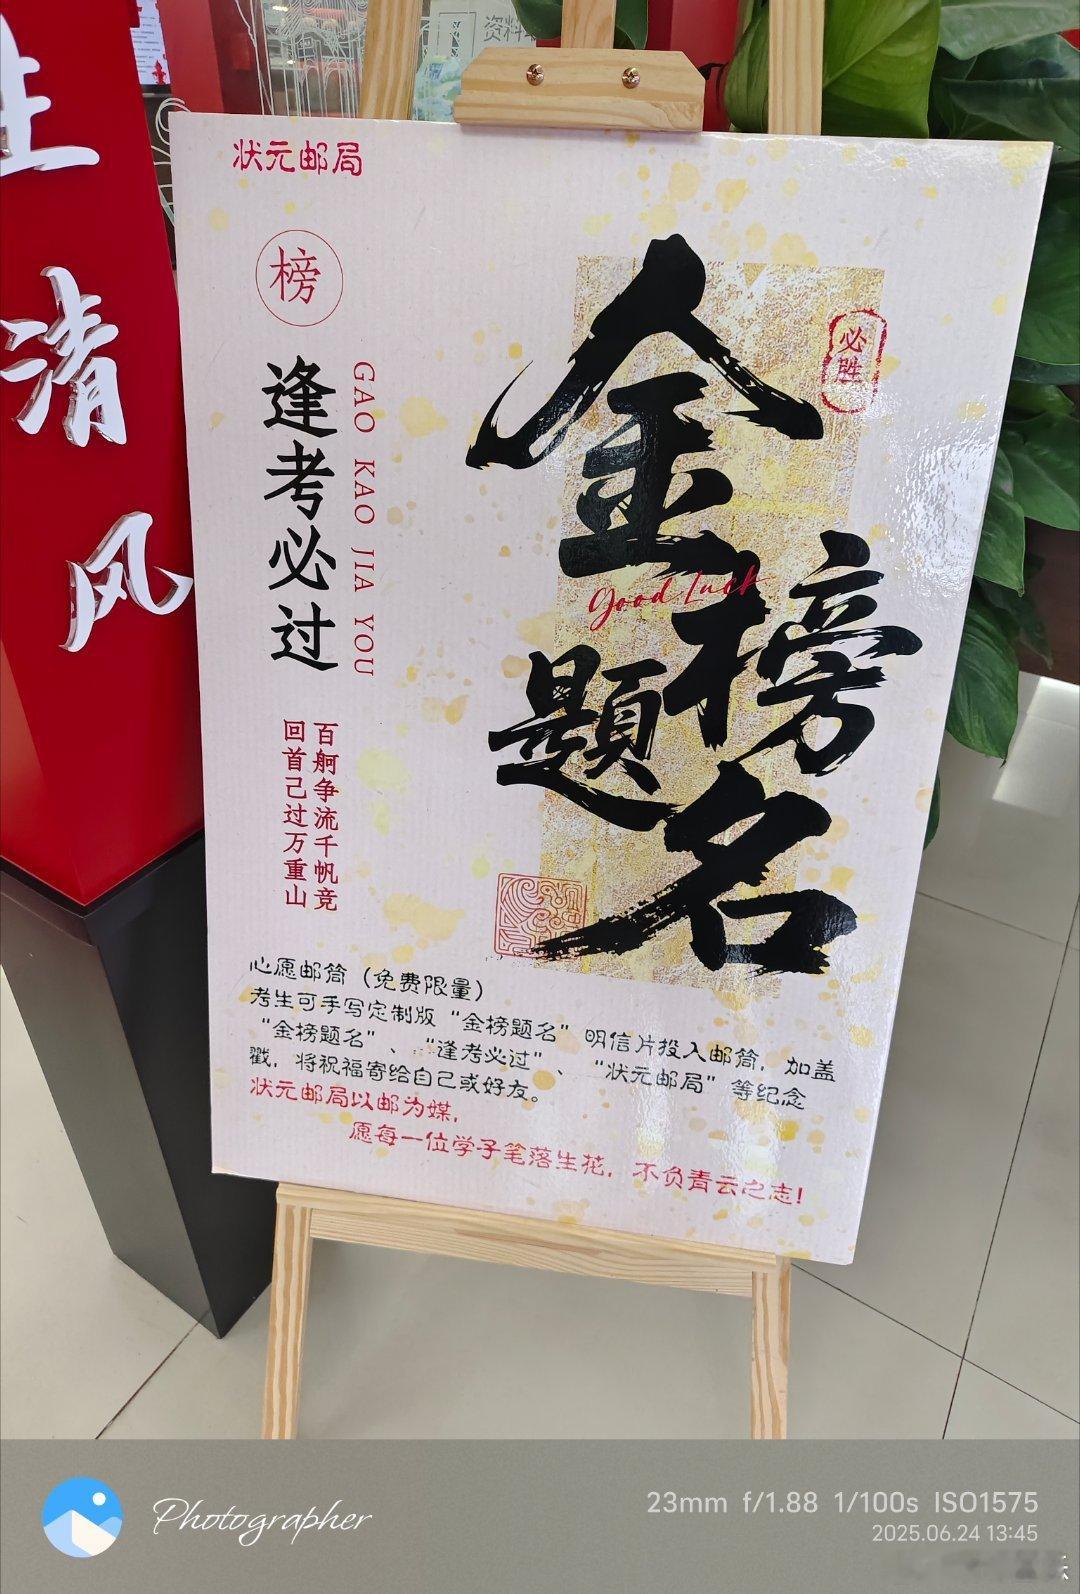 资料
清
风
状元邮局
榜
逢考必过
GAO KAO JIA YOU
百舸争流千帆竞
回首己过万重山
金榜题名
必胜
Good Luck
心愿邮筒（免费限量）
考生可手写定制版“金榜题名”明信片投入邮筒，加盖
“金榜题名”、“逢考必过”、“状元邮局”等纪念
戳，将祝福寄给自己或好友。
状元邮局以邮为媒，
愿每一位学子笔落生花，不负青云之志！
Photographer
23mm f/1.88 1/100s ISO1575
2025.06.24 13:45